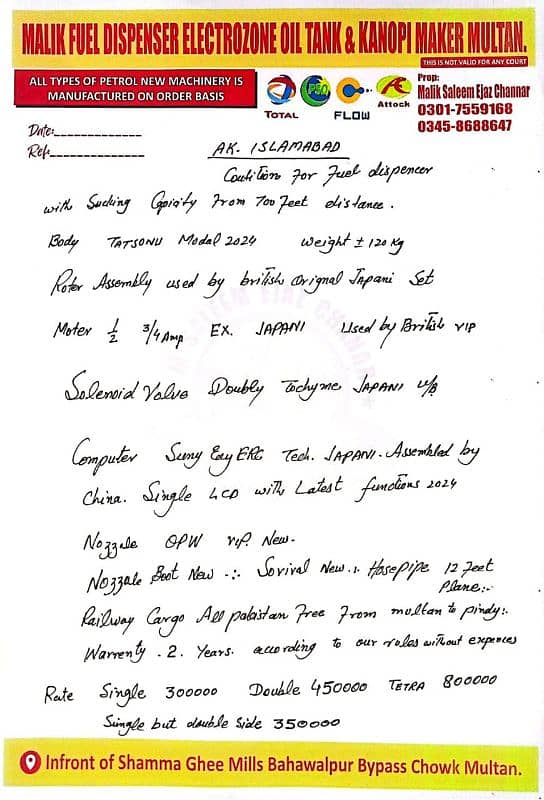 MALIK FUEL DISPENSER ELECTROZONE OIL TANK & KANOPI MAKER MULTAN.
THIS IS NOT VALID FOR ANY COURT
ALL TYPES OF PETROL NEW MACHINERY IS
MANUFACTURED ON ORDER BASIS
TOTAL
PSO
FLOW
Attock
Prop:
Malik Saleem Ejaz Channar
0301-7559168
0345-8688647
Date:
Ref:
AK. ISLAMABAD
Coutition For Fuel dispencer
with Sucking Capicity From 700 Feet distance.
Body TATSONU Modal 2024 weight ± 120 Kg
Roter Assembly used by british Orignal Japani Set
Moter 1/2 3/4 Amp EX. JAPANI Used by British VIP
Solenoid Valve Doubly Tochyme JAPANI
Computer Suny Tech. JAPANI. Assembled by
China. Single LCD with Latest functions 2024
Nozzale OPW VIP New.
Nozzale Boot New -:- Sovival New.:. Hosepipe 12 Feet
Plane:-
Railway Cargo All pakistan Free From multan to pindy:.
Warrenty . 2. Years. according to our rules without expences
Rate Single 300000 Double 450000 TETRA 800000
Single but double side 350000
Infront of Shamma Ghee Mills Bahawalpur Bypass Chowk Multan.